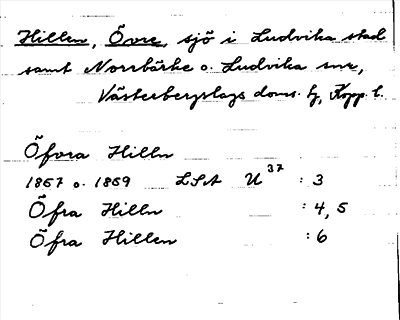 Hillen, Övre, sjö i Ludvika stad
samt Norrbärke o. Ludvika snr,
Västerbergslags doms. h, Kopp. l.
Öfvra Hilln
1867 o. 1869 LSA U 37 : 3
Öfra Hilln : 4, 5
Öfra Hillen : 6